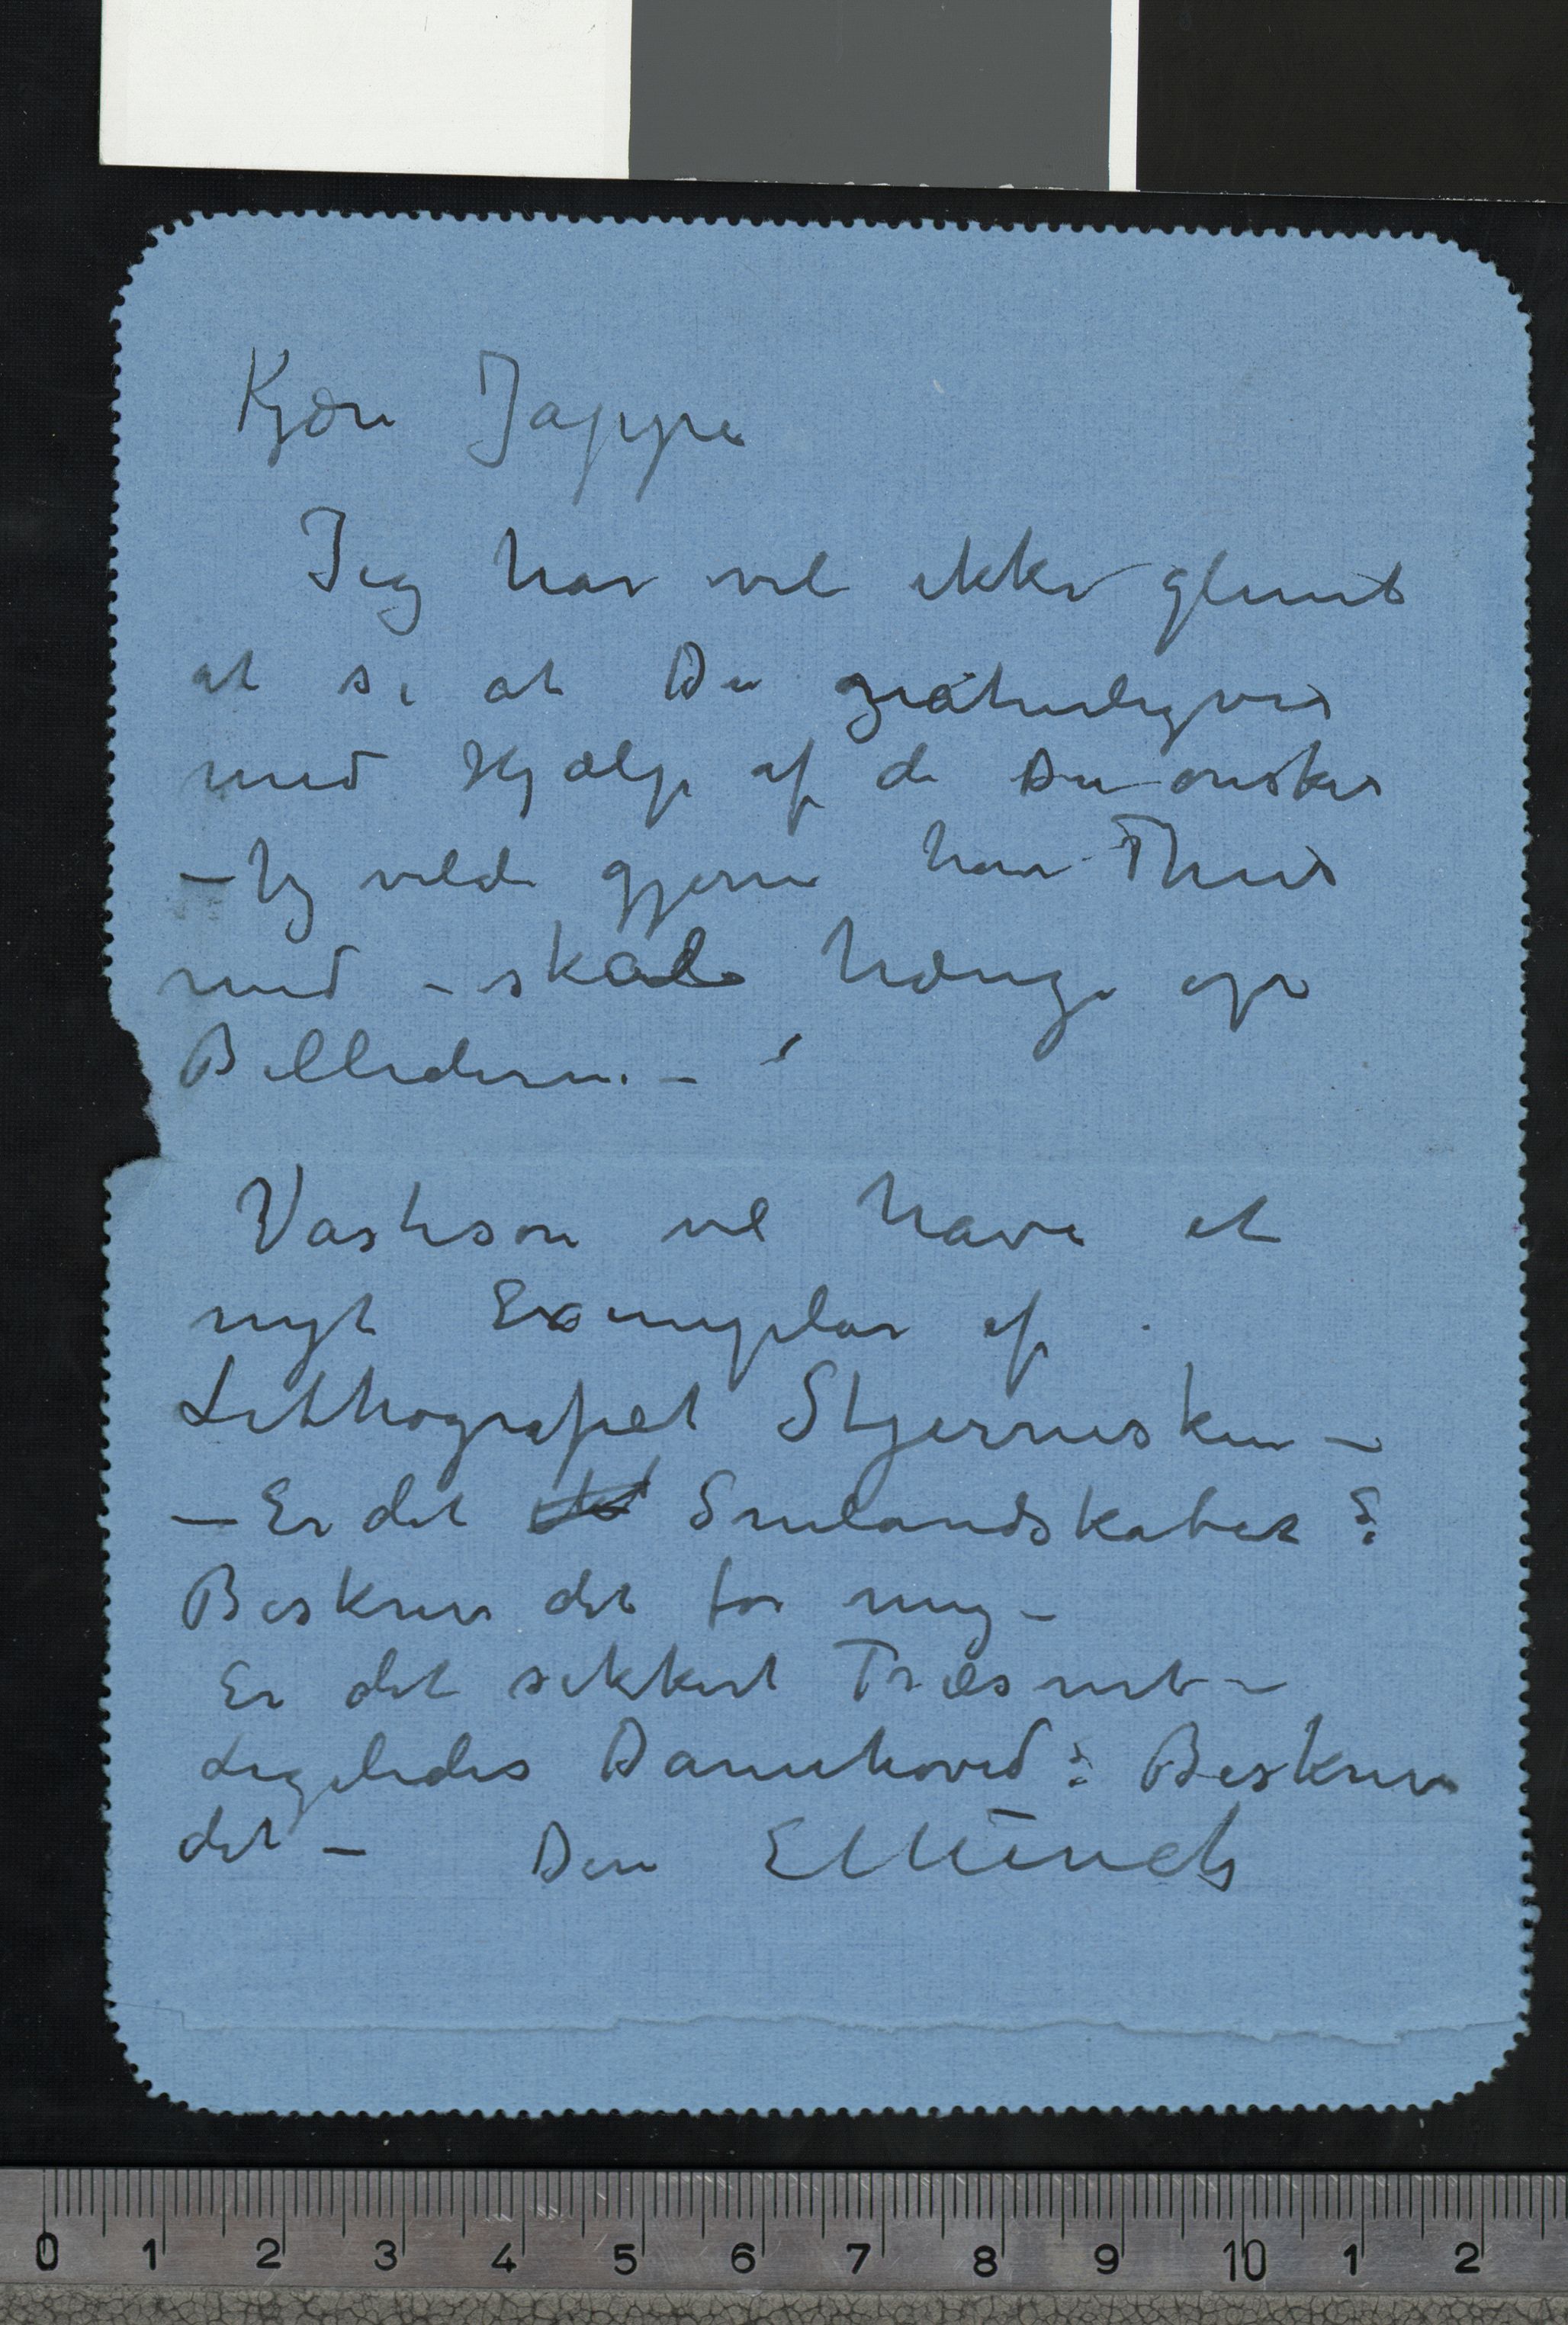 Kjære Jappe
Jeg har vel ikke glemt
at si at Du naturligvis
med Hjælp af de Du ønsker
– Jeg vilde gjerne ha Thiis
med – skal hænge op
Billederne. –
Vastison vil have et
nyt Exemplar af
Lithografiet Stjerneskin –
– Er det Snelandskabet?
Beskriv det for mig –
Er det sikkert Træsnit –
Ligeledes Damehoved? Beskriv
det – Din E Munch
0 1 2 3 4 5 6 7 8 9 10 1 2